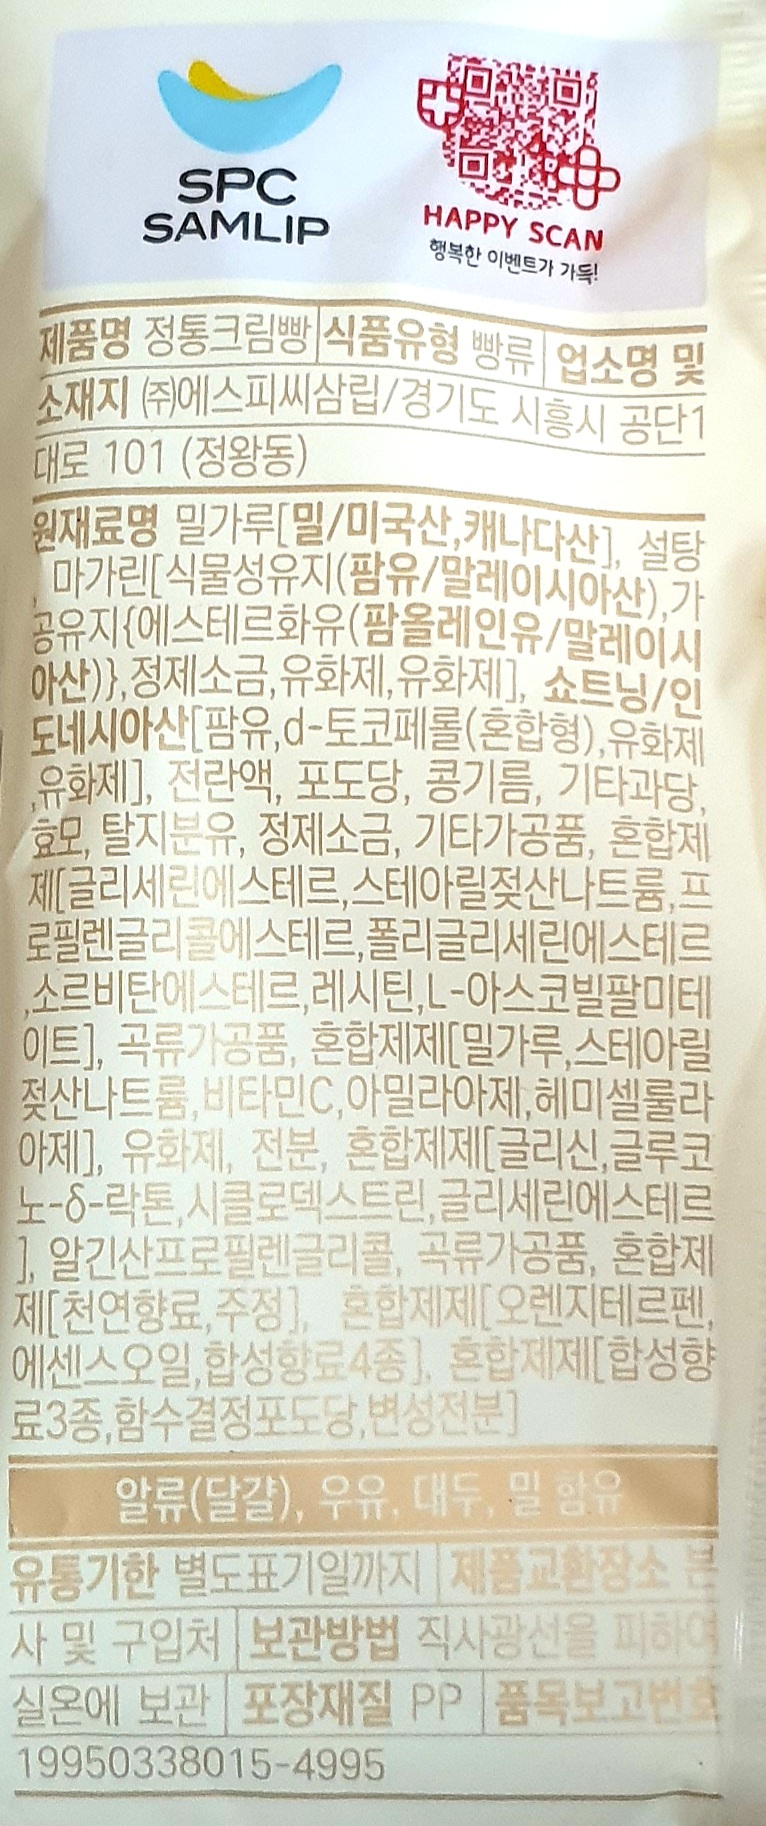 SPC
SAMLIP
HAPPY SCAN
행복한 이벤트가 가득!
제품명 정통크림빵 식품유형 빵류 업소명 및
소재지 ㈜에스피씨삼립/경기도 시흥시 공단1
대로 101 (정왕동)
원재료명 밀가루[밀/미국산,캐나다산], 설탕
, 마가린[식물성유지(팜유/말레이시아산),가
공유지{에스테르화유(팜올레인유/말레이시
아산)},정제소금,유화제,유화제], 쇼트닝/인
도네시아산[팜유,d-토코페롤(혼합형),유화제
,유화제], 전란액, 포도당, 콩기름, 기타과당,
효모, 탈지분유, 정제소금, 기타가공품, 혼합제
제[글리세린에스테르,스테아릴젖산나트륨,프
로필렌글리콜에스테르,폴리글리세린에스테르
,소르비탄에스테르,레시틴,L-아스코빌팔미테
이트], 곡류가공품, 혼합제제[밀가루,스테아릴
젖산나트륨,비타민C,아밀라아제,헤미셀룰라
아제], 유화제, 전분, 혼합제제[글리신,글루코
노-δ-락톤,시클로덱스트린,글리세린에스테르
], 알긴산프로필렌글리콜, 곡류가공품, 혼합제
제[천연향료,주정], 혼합제제[오렌지테르펜,
에센스오일,합성향료4종], 혼합제제[합성향
료3종,함수결정포도당,변성전분]
알류(달걀), 우유, 대두, 밀 함유
유통기한 별도표기일까지 제품교환장소 본
사 및 구입처 보관방법 직사광선을 피하여
실온에 보관 포장재질 PP 품목보고번호
19950338015-4995